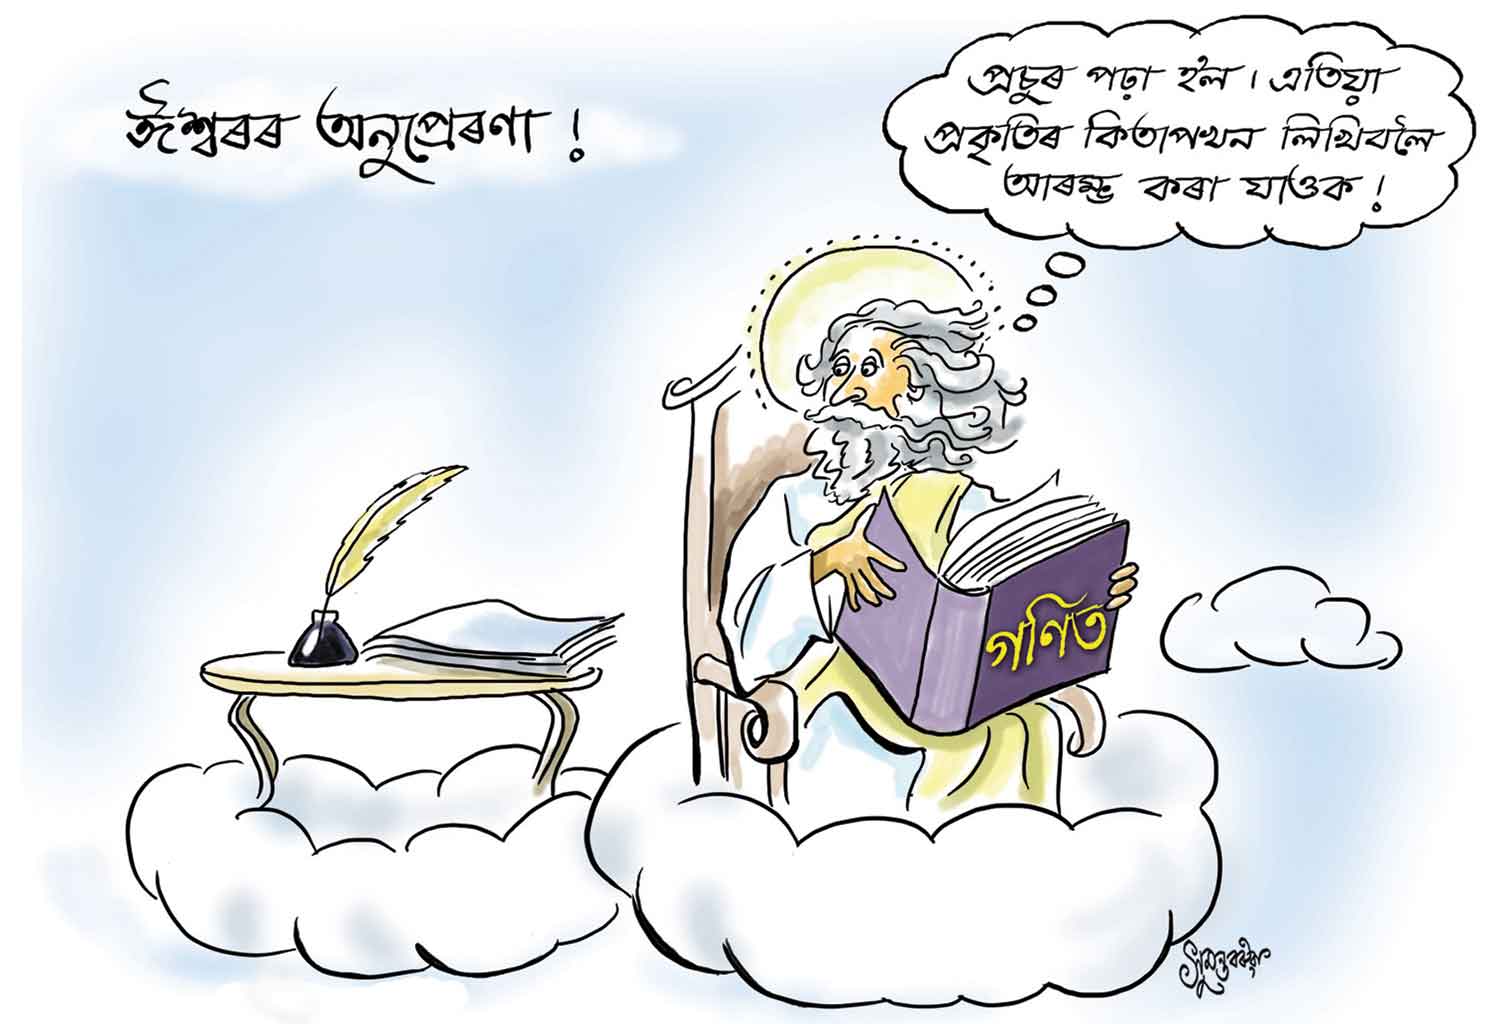 ঈশ্বৰৰ অনুপ্ৰেৰণা !
প্ৰচুৰ পঢ়া হ'ল । এতিয়া
প্ৰকৃতিৰ কিতাপখন লিখিবলৈ
আৰম্ভ কৰা যাওক !
গণিত